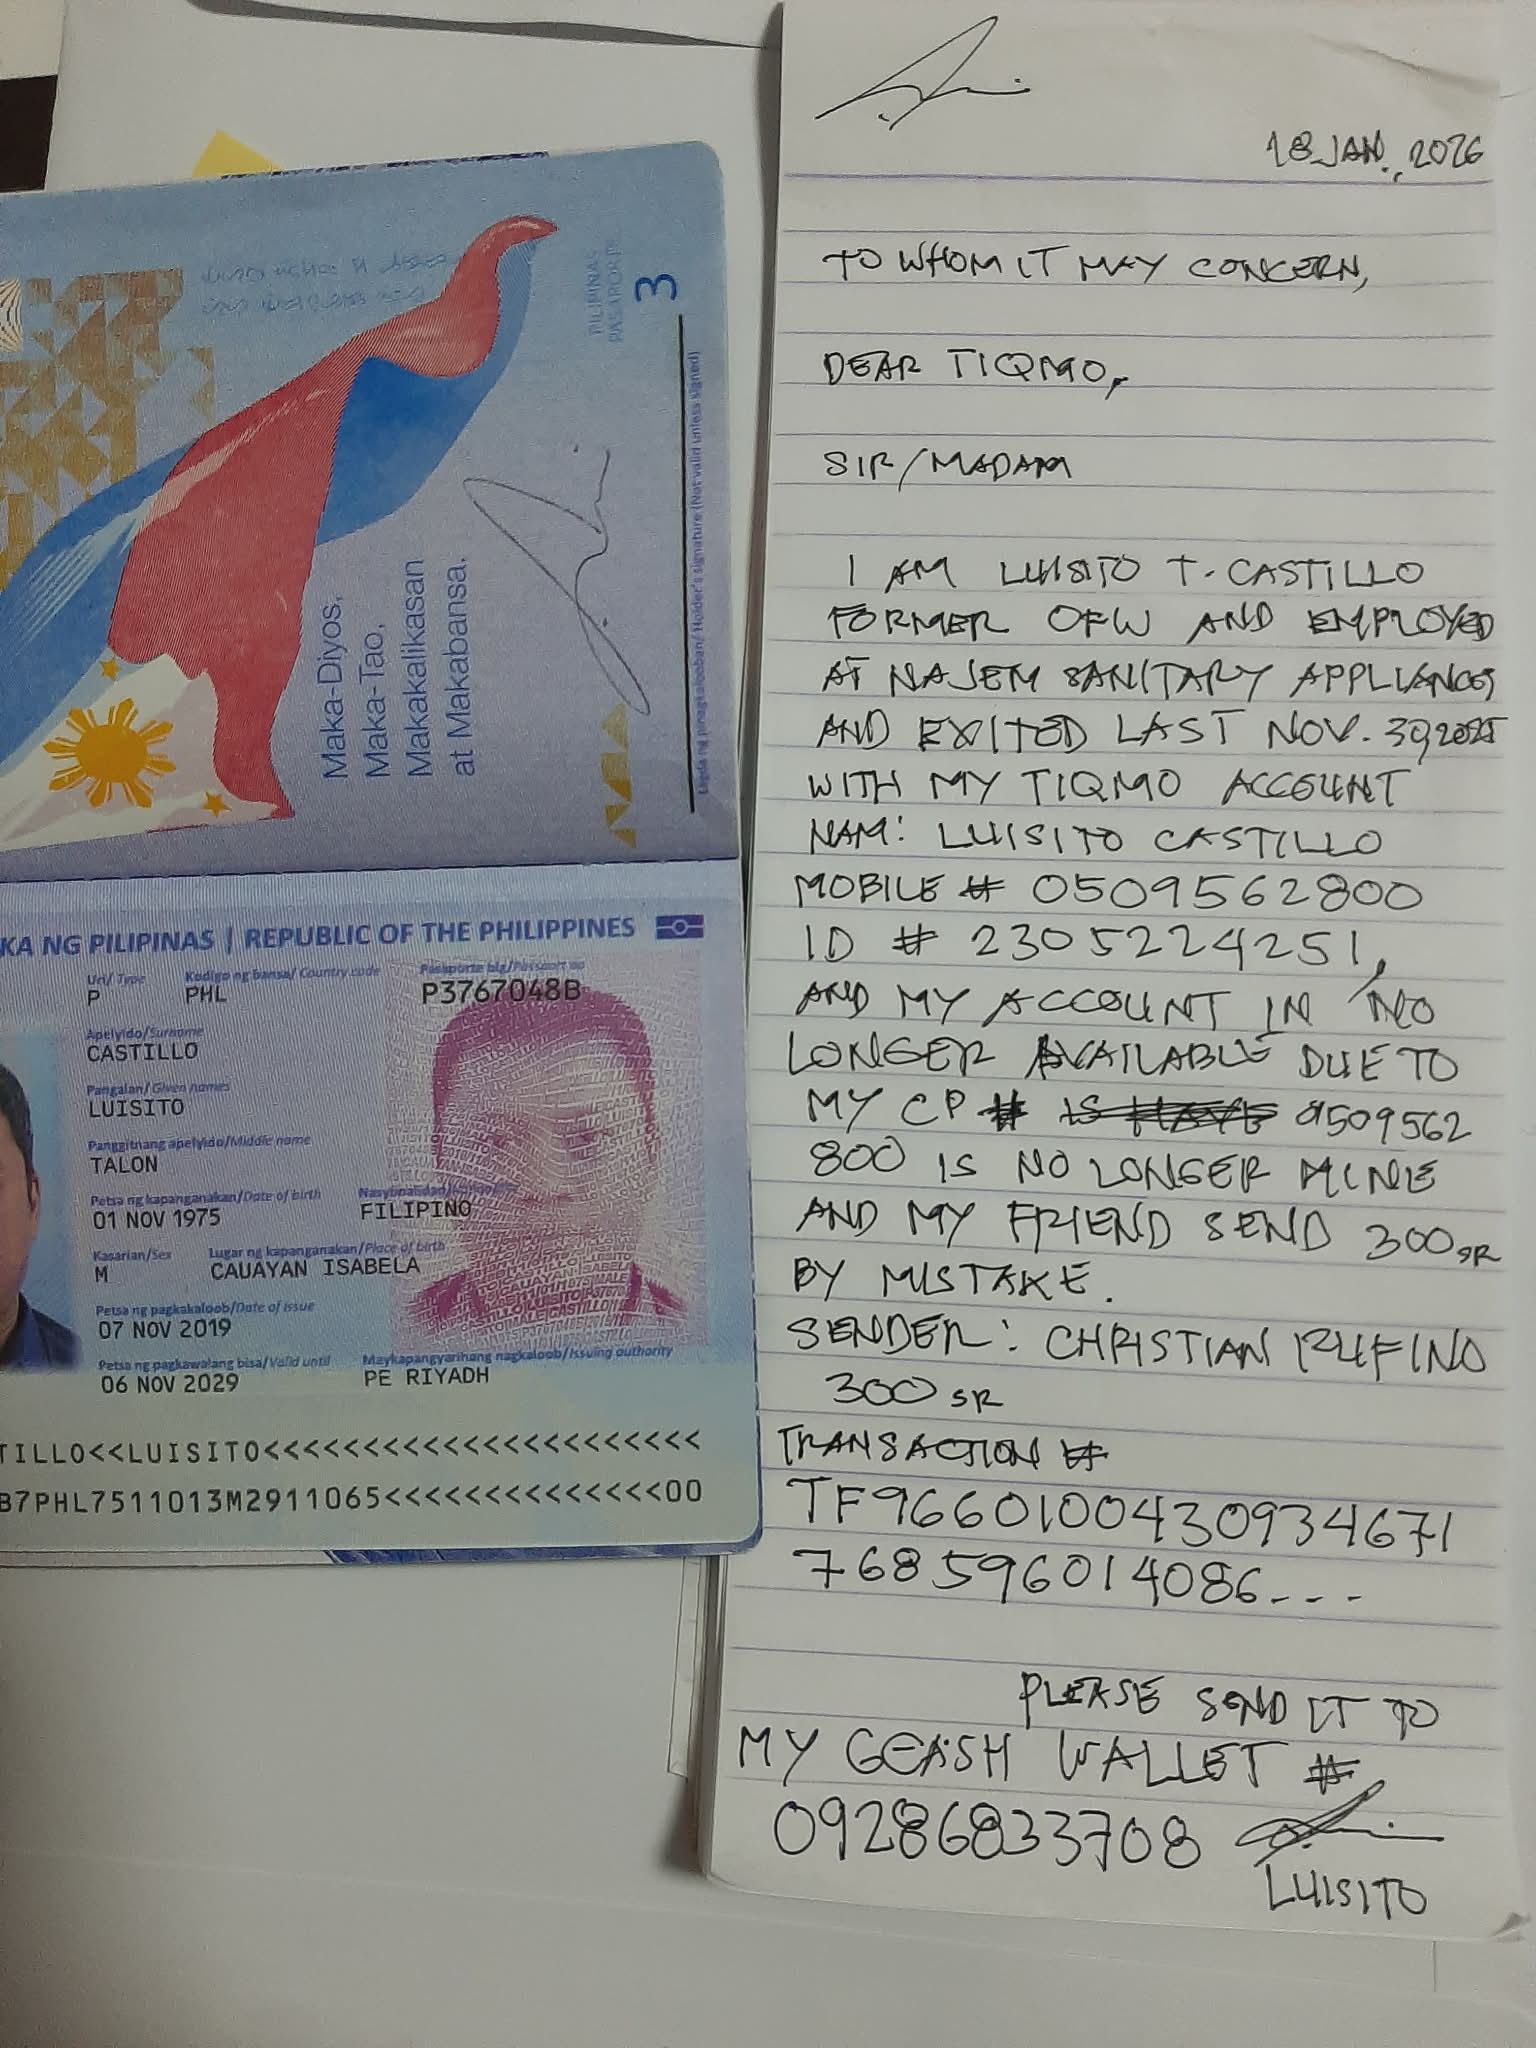 3
PILIPINAS
PASAPORTE
Maka-Diyos,
Maka-Tao,
Makakalikasan
at Makabansa.
Lagda ng pinagkalooban/ Holder's signature (Not valid unless signed)
KA NG PILIPINAS | REPUBLIC OF THE PHILIPPINES
Uri/ Type
Kodigo ng bansa/ Country code
Pasaporte blg/Passport no
P
PHL
P3767048B
Apelyido/Surname
CASTILLO
Pangalan/ Given names
LUISITO
Panggitnang apelyido/Middle name
TALON
Petsa ng kapanganakan/Date of birth
01 NOV 1975
FILIPINO
Kasarian/Sex
Lugar ng kapanganakan/Place of birth
M
CAUAYAN ISABELA
Petsa ng pagkakaloob/Date of issue
07 NOV 2019
Petsa ng pagkawalang bisa/Valid until
Maykapangyarihang nagkaloob/Issuing authority
06 NOV 2029
PE RIYADH
TILLO<<LUISITO<<<<<<<<<<<<<<<<<<<<<<<<
B7PHL7511013M2911065<<<<<<<<<<<<<<00
18 JAN., 2026
TO WHOM IT MAY CONCERN,
DEAR TIQMO,
SIR/MADAM
I AM LUISITO T. CASTILLO
FORMER OFW AND EMPLOYED
AT NAJEM SANITARY APPLIANCES
AND EXITED LAST NOV. 30, 2025
WITH MY TIQMO ACCOUNT
NAM: LUISITO CASTILLO
MOBILE # 0509562800
ID # 2305224251,
AND MY ACCOUNT IN NO
LONGER AVAILABLE DUE TO
MY CP # IS HAVE 0509562
800 IS NO LONGER MINE
AND MY FRIEND SEND 300 SR
BY MISTAKE.
SENDER: CHRISTIAN RUFINO
300 SR
TRANSACTION #
TF9660100430934671
768596014086...
PLEASE SEND IT TO
MY GCASH WALLET #
09286833708
LUISITO